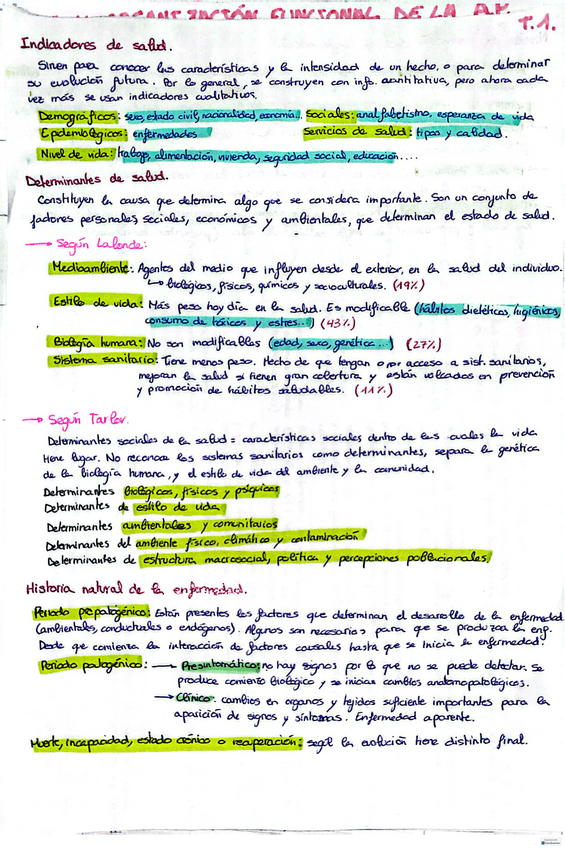 ORGANIZACIÓN FUNCIONAL DE LA A.P.
T.1.
Indicadores de salud.
Sirven para conocer las características y la intensidad de un hecho, o para determinar
su evolución futura. Por lo general, se construyen con info. cuantitativa, pero ahora cada
vez más se usan indicadores cualitativos.
Demográficos: sexo, estado civil, nacionalidad, economía.. Sociales: analfabetismo, esperanza de vida
Epidemiológicos: enfermedades Servicios de salud: tipos y calidad.
Nivel de vida: trabajo, alimentación, vivienda, seguridad social, educación....
Determinantes de salud.
Constituyen la causa que determina algo que se considera importante. Son un conjunto de
factores personales sociales, económicos y ambientales, que determinan el estado de salud.
→ Según Lalonde:
Medioambiente: Agentes del medio que influyen desde el exterior, en la salud del individuo.
↳ biológicos, físicos, químicos y socioculturales. (19%)
Estilo de vida: Más peso hoy día en la salud. Es modificable (hábitos dietéticos, higiénicos,
consumo de tóxicos y estres...) (43%)
Biología humana: No son modificables (edad, sexo, genética...) (27%)
Sistema sanitario: Tiene menos peso. Hecho de que tengan o no acceso a sist. sanitarios,
mejoran la salud si tienen gran cobertura y están volcados en prevención
y promoción de hábitos saludables. (11%)
→ Según Tarlov.
Determinantes sociales de la salud = características sociales dentro de las cuales la vida
tiene lugar. No reconoce los sistemas sanitarios como determinantes, separa la genética
de la biología humana, y el estilo de vida del ambiente y la comunidad.
Determinantes biológicos, físicos y psíquicos
Determinantes de estilo de vida
Determinantes ambientales y comunitarios
Determinantes del ambiente físico, climático y contaminación
Determinantes de estructura macrosocial, política y percepciones poblacionales.
Historia natural de la enfermedad.
Periodo prepatogénico: Están presentes los factores que determinan el desarollo de la enfermedad
(ambientales, conductuales o endógenos). Algunos son necesarios para que se produzca la enf.
Desde que comienza la interacción de factores causales hasta que se inicia la enfermedad.
Periodo patogénico: → Presintomático: no hay signos por lo que no se puede detectar. Se
produce comienzo biológico y se inician cambios anatomopatológicos.
→ Clínico: cambios en organos y tejidos suficiente importantes para la
aparición de signos y síntomas. Enfermedad aparente.
Muerte, incapacidad, estado crónico o recuperación: según la evolución tiene distinto final.